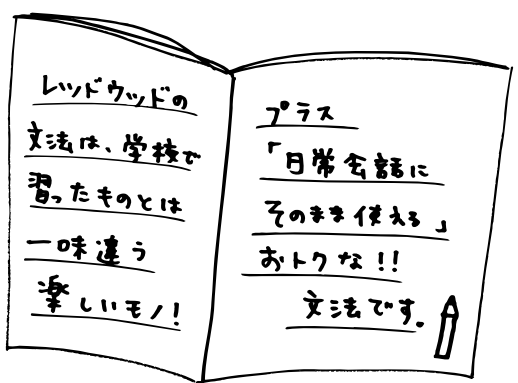 レッドウッドの
文法は、学校で
習ったものとは
一味違う
楽しいモノ!
プラス
「日常会話に
そのまま使える」
おトクな!!
文法です。